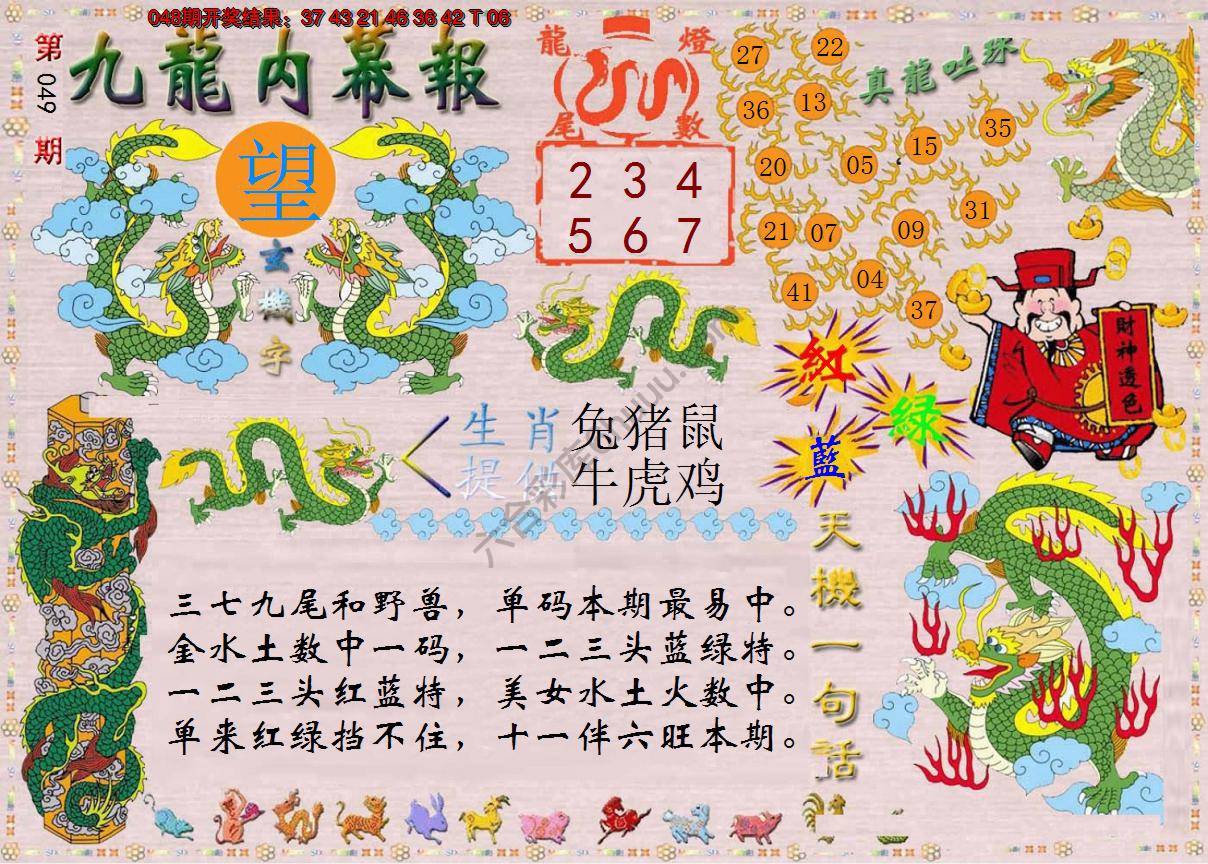 048期开奖结果：37 43 21 46 36 42 T 06
第049期
九龍内幕報
望
玄機字
龍燈尾數
2 3 4
5 6 7
真龍吐珠
27 22
36 13
20 05 15 35
21 07 09 31
41 04 37
財神透色
紅
綠
藍
生肖 兔猪鼠
提供 牛虎鸡
天機一句話
三七九尾和野兽，单码本期最易中。
金水土数中一码，一二三头蓝绿特。
一二三头红蓝特，美女水土火数中。
单来红绿挡不住，十一伴六旺本期。